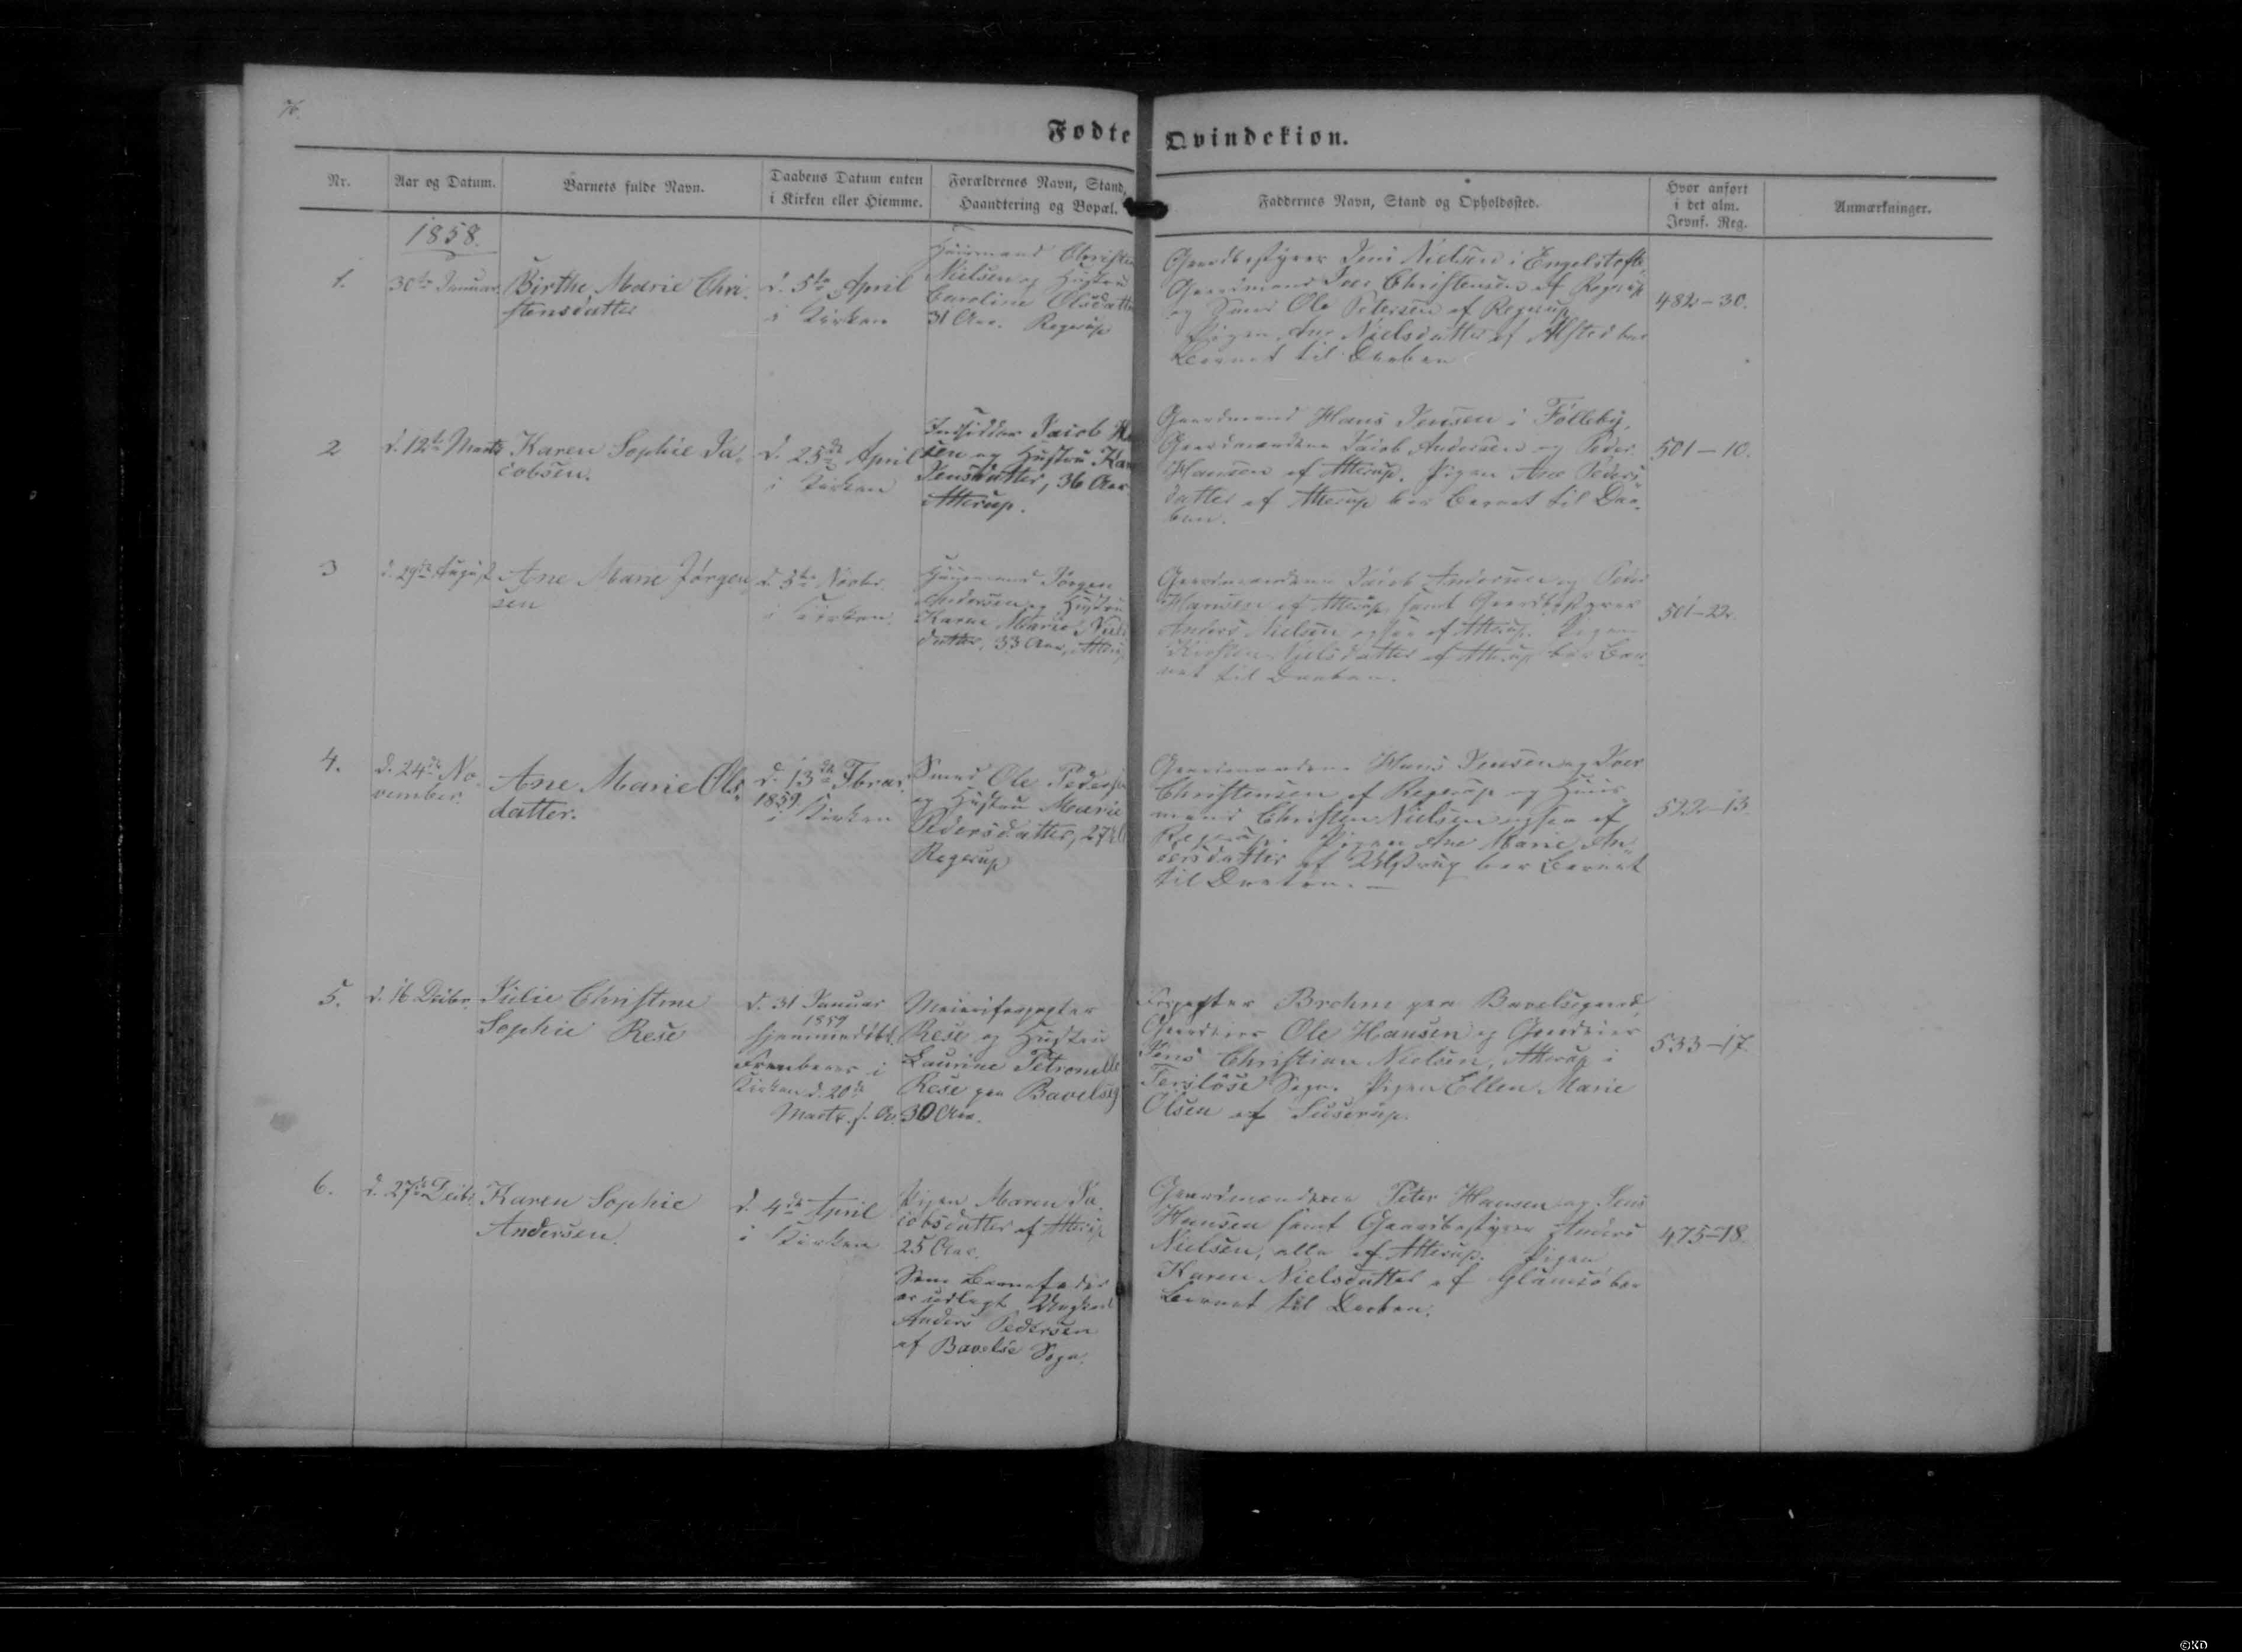 76.
Fødte Qvindekiøn.
Nr.
Aar og Datum.
Barnets fulde Navn.
Daabens Datum enten
i Kirken eller Hiemme.
Forældrenes Navn, Stand,
Haandtering og Bopæl.
Faddernes Navn, Stand og Opholdssted.
Hvor anført
i det alm.
Jevnf. Reg.
Anmærkninger.
1858.
1.
30te Januar.
Birthe Marie Chri-
stensdatter
d. 5te April
i Kirken
Huusmand Christen
Nielsen og Hustru
Caroline Olsdatter
31 Aar. Regerup
Gaardbestyrer Jens Nielsen i Engelstofte,
Gaardmand Iver Christensen af Regerup
og Smed Ole Petersen af Regerup
Pigen Ane Nielsdatter af Alsted bar
Barnet til Daaben
482-30.
2
d. 12te Marts
Karen Sophie Ja-
cobsen.
d. 25de April
i Kirken
Indsidder Jacob
sen og Hustru
Jensdatter, 36 Aar
Atterup.
Gaardmand Hans Jensen i Følleby,
Gaardmændene Jacob Andersen og Peder
Hansen af Atterup. Pigen Ane Peders-
datter af Atterup bar Barnet til Daa-
ben.
501-10.
3
d. 29de August
Ane Marie Jørgen-
sen
d. 5te Novbr.
i Kirken.
Huusmand Jørgen
Andersen og Hustru
Karen Marie Niels-
datter, 33 Aar, Atterup
Gaardmændene Jacob Andersen og Peder
Hansen af Atterup samt Gaardbestyrer
Anders Nielsen ogsaa af Atterup. Pigen
Kirsten Nielsdatter af Atterup bar Bar-
net til Daaben.
501-22.
4.
d. 24de No-
vember.
Ane Marie Ols-
datter.
d. 13de Fbruar
1859.
i Kirken
Smed Ole Pedersen
og Hustru Marie
Pedersdatter, 27
Regerup
Gaardmændene Hans Jensen og Iver
Christensen af Regerup og Huus-
mand Christen Nielsen ogsaa af
Regerup. Pigen Ane Marie An-
dersdatter af Ulstrup bar Barnet
til Daaben.
522-13.
5.
d. 16 Decbr.
Julie Christine
Sophie Rese
d. 31 Januar
1859
hjemmedøbt.
Frembaaren i
Kirken d. 20de
Marts s. A.
Meieriforpagter
Rese og Hustru
Laurine Petronelle
Rese paa Bavelseg
30 Aar.
Forpagter Brohm paa Bavelsegaard,
Gaardeier Ole Hansen og Gaardeier
Jens Christian Nielsen, Atterup i
Tersløse Sogn. Pigen Ellen Marie
Olsen af Suserup.
533-17
6.
d. 27de Decbr
Karen Sophie
Andersen.
d. 4de April
i Kirken
Pigen Maren Ja-
cobsdatter af Atterup
25 Aar.
Som Barnefader
er udlagt Ungkarl
Anders Pedersen
af Bavelse Sogn.
Gaardmændene Peter Hansen og Jens
Hansen samt Gaardbestyrer Anders
Nielsen, alle af Atterup. Pigen
Karen Nielsdatter af Glumsø bar
Barnet til Daaben.
475-18.
©KD